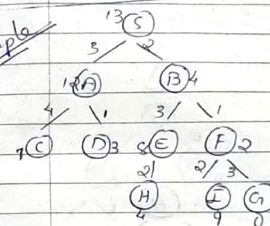 13 S
3 2
12 A B 4
4 1 3 1
7 C D 3 8 E F 2
2 2 3
H I G
4 9 0